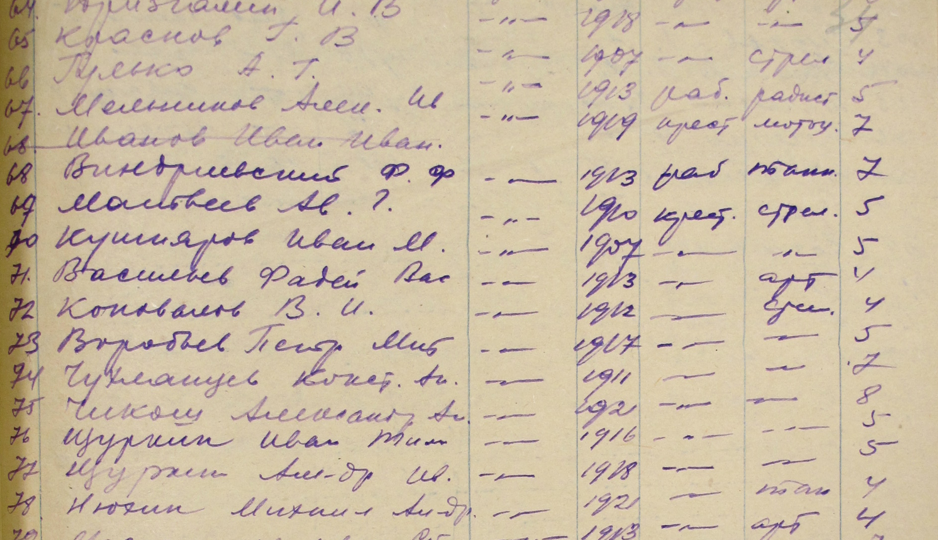 64. И. В -"- 1918 -"- -"- 5
65 Краснов Г. В
66 Гулько А. Г. -"- 1907 -"- стрел 4
67. Мельников Алек. Ив -"- 1913 раб. радист 5
68. Иванов Иван Иван. -"- 1919 крест мотоц. 7
68 Ф. Ф -"- 1913 раб танк. 7
69 Матвеев Ав. Г. -"- 1910 крест. стрел. 5
70 Кушнаров Иван М. -"- 1907 -"- -"- 5
71. Васильев Фадей Вас -"- 1913 -"- арт 4
72 Коновалов В. И. -"- 1912 -"- стрел. 4
73 Воробьев Петр Мит -"- 1917 -"- -"- 5
74 Конст. Ан. -"- 1911 -"- -"- 7
75 Чикош Александр Ан. -"- 1921 -"- -"- 8
76 Щуркин Иван Тим -"- 1916 -"- -"- 5
77 Щуркин Ал-др Ив. -"- 1918 -"- -"- 5
78 Нюхин Михаил Андр. -"- 1921 -"- танк 4
79 1913 -"- арт 4